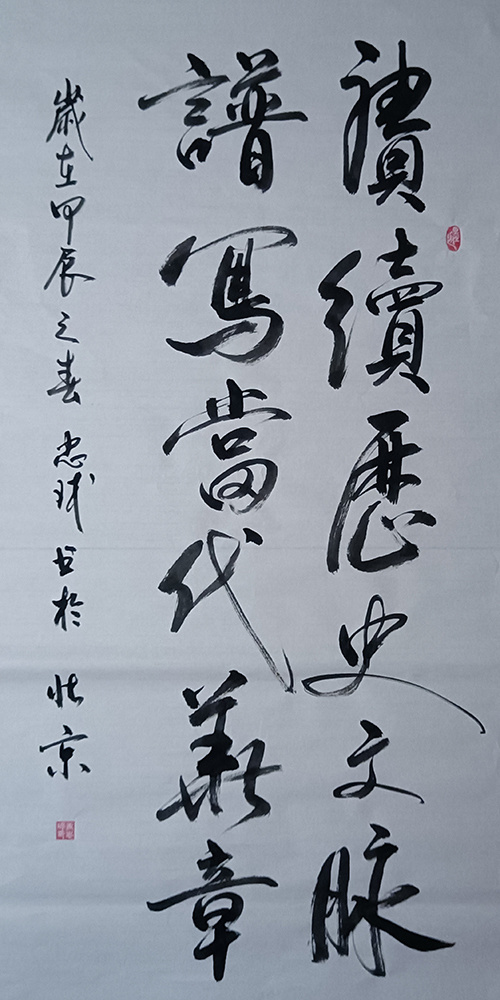 賡續歷史文脉
譜寫當代華章
歲在甲辰之春 忠球书於北京